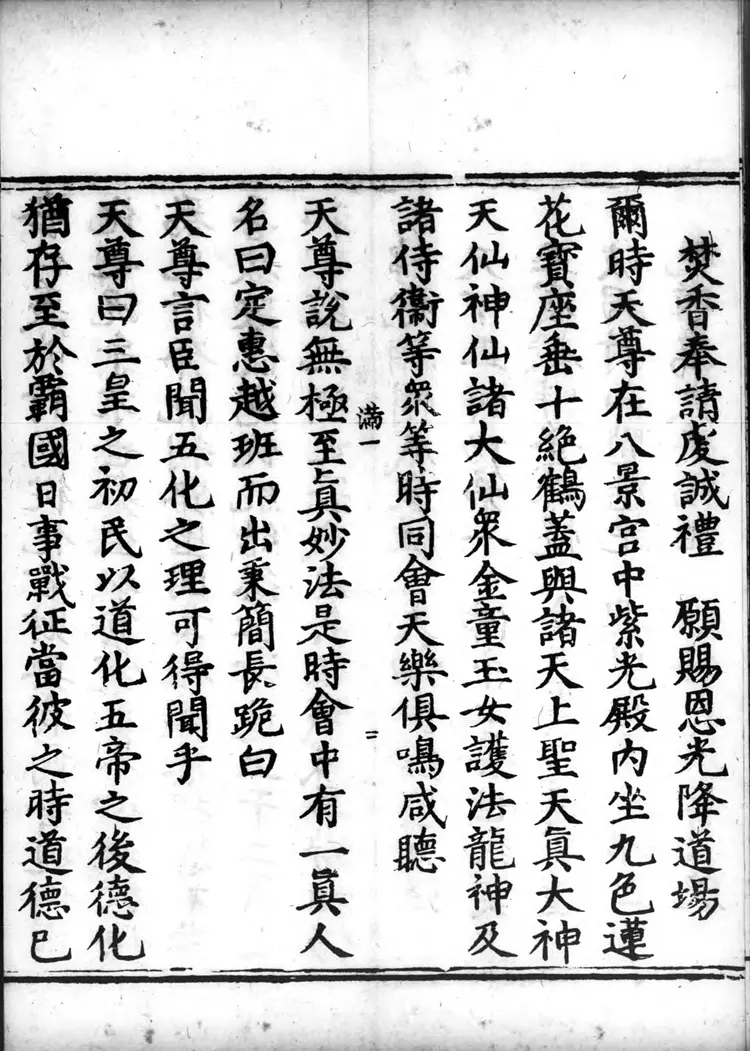 焚香奉請虔誠禮　願賜恩光降道場
爾時天尊在八景宮中紫光殿內坐九色蓮
花寶座垂十絕鶴蓋與諸天上聖天眞大神
天仙神仙諸大仙衆金童玉女護法龍神及
諸侍衞等衆等時同會天樂俱鳴咸聽
滿一
二
天尊說無極至眞妙法是時會中有一眞人
名曰定惠越班而出秉簡長跪白
天尊言臣聞五化之理可得聞乎
天尊曰三皇之初民以道化五帝之後德化
猶存至於霸國日事戰征當彼之時道德已